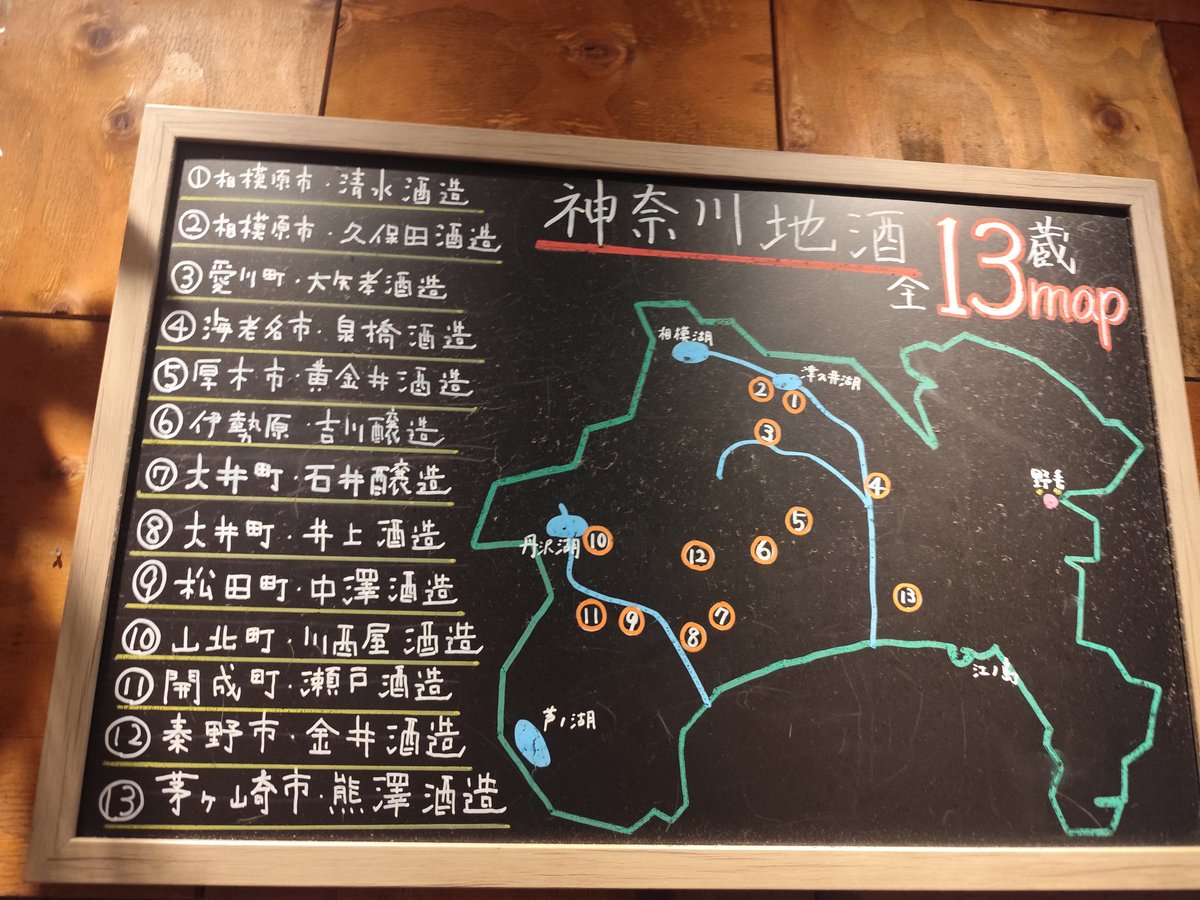 神奈川地酒 全13蔵map
①相模原市・清水酒造
②相模原市・久保田酒造
③愛川町・大矢孝酒造
④海老名市・泉橋酒造
⑤厚木市・黄金井酒造
⑥伊勢原・吉川醸造
⑦大井町・石井醸造
⑧大井町・井上酒造
⑨松田町・中澤酒造
⑩山北町・川西屋酒造
⑪開成町・瀬戸酒造
⑫秦野市・金井酒造
⑬茅ヶ崎市・熊澤酒造
相模湖
津久井湖
②
①
③
④
野毛
⑤
丹沢湖
⑩
⑫
⑥
⑬
⑪
⑨
⑦
⑧
江ノ島
芦ノ湖